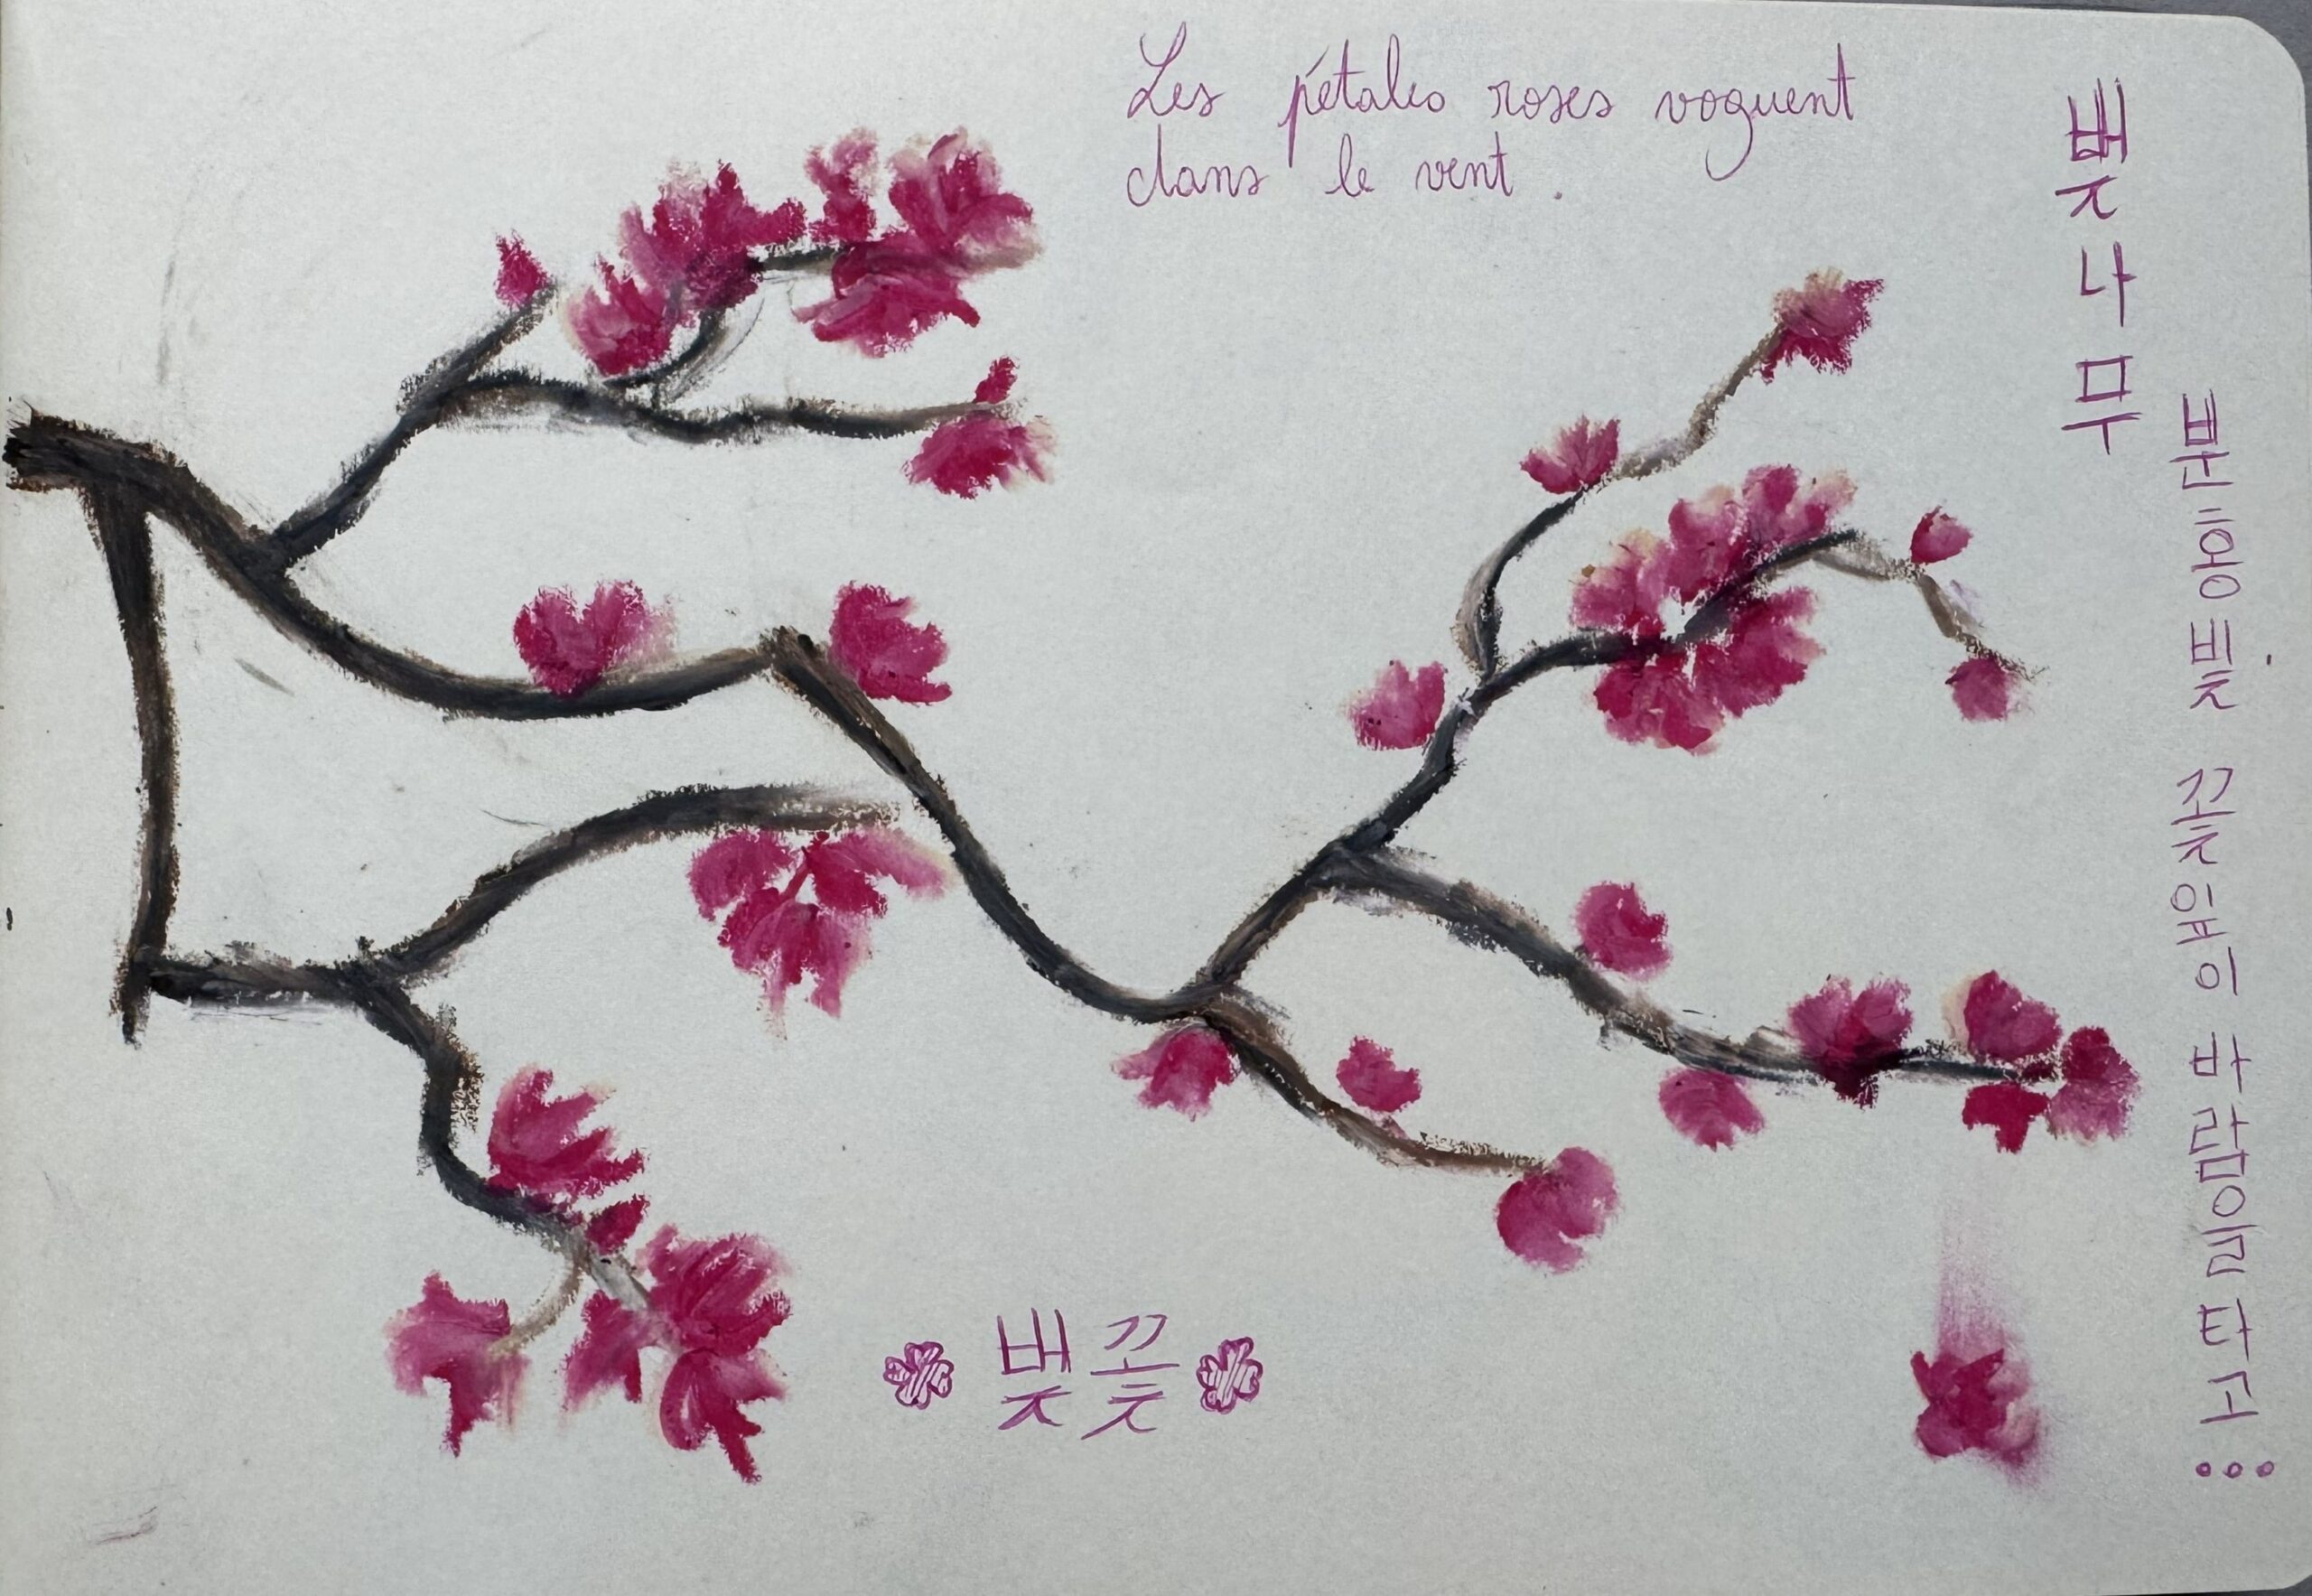 Les pétales roses voguent
dans le vent.
벚나무
분홍빛 꽃잎이 바람을 타고...
벚꽃